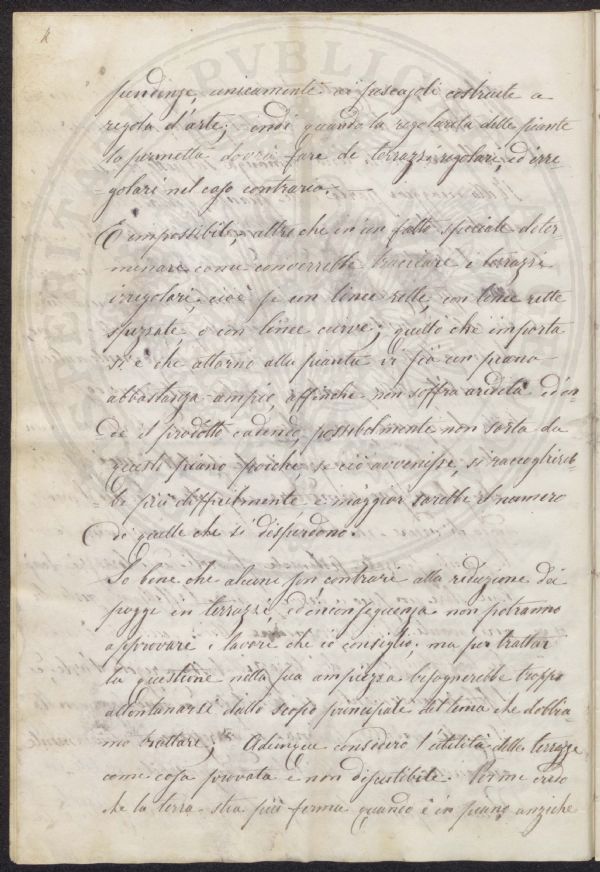 pendenze, unicamente ai pascagoli costruite a
regola d'arte; indi quando la regolarità delle piante
lo permetta dovrà fare de' terrazzi regolari, ed irre-
-golari nel caso contrario.
È impossibile, altro che in un fatto speciale deter-
minare come converrebbe tracciare i terrazzi
irregolari, cioè se un linee rette, con linee rette
spezzate, o con linee curve; quello che importa
si è che attorno alla pianta vi sia un piano
abbastanza ampio, affinchè non soffra aridità, ed on-
-de il prodotto cadendo, possibilmente non sorta da
questi piano poichè se ciò avvenisse, si raccoglireb-
-be più difficilmente e maggior sarebbe il numero
di quelle che si disperdono.
So bene che alcuni son contrari alla riduzione dei
poggi in terrazzi, ed in conseguenza non potranno
approvare i lavori che io consiglio, ma per trattar
la questione nella sua ampiezza bisognerebbe troppo
allontanarsi dallo scopo principale del tema che dobbia-
mo trattare; Adunque considero l'utilità delle terrazze
come cosa provata e non discutibile. Per me credo
che la terra stia più ferma quando è in piano, anzichè
PVBLIC
VERITA